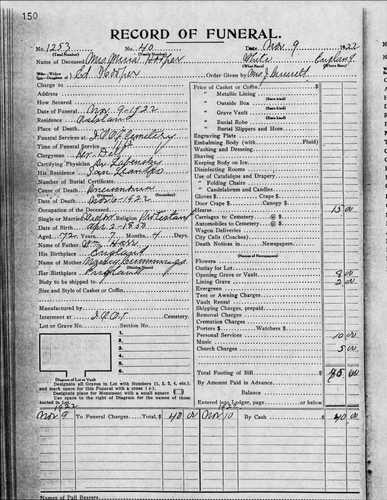 150
RECORD OF FUNERAL.
No. 1253 No. 40 Date Nov. 9 1922
(Total Number) (Yearly Number)
Name of Deceased Mrs. Hooper White England
(What Race) (Where Born)
Ed Hooper Order Given by Mrs. J.
Charge to
Address
How Secured
Date of Funeral Nov. 9-1922
Residence Oakland
Place of Death
Funeral Services at I.O.O.F. Cemetery
Time of Funeral Service
Clergyman
Certifying Physician
His Residence San Leandro
Number of Burial Certificate
Cause of Death Pneumonia
Date of Death Nov. 6-1922
Occupation of the Deceased
Single or Married Religion Protestant
Date of Birth Apr. 2-1850
Aged 72 Years 7 Months 4 Days
Name of Father Wm.
His Birthplace England
Name of Mother Cummings
Her Birthplace England
Body to be shipped to
Size and Style of Casket or Coffin
Manufactured by
Interment at I.O.O.F. Cemetery
Lot or Grave No. Section No.
1
2
3
4
5
6
Diagram of Lot or Vault
Designate all Graves in Lot with Numbers (1, 2, 3, 4, etc.), and mark space for this Funeral with a cross (+).
Designate place for Monument with a small square
Use space to the right of Diagram for the names of those buried in Lot.
Price of Casket or Coffin
" Metallic Lining
" Outside Box
" Grave Vault
" Burial Robe
" Burial Slippers and Hose
Engraving Plate
Embalming Body (with Fluid)
Washing and Dressing
Shaving
Keeping Body on Ice
Disinfecting Rooms
Use of Catafalque and Drapery
" Folding Chairs
" Candelabrum and Candles
Gloves $ Crape $
Door Crape $ Canopy $
Hearse 15 00
Carriages to Cemetery @ $
Automobiles to Cemetery @ $
Wagon Deliveries
City Calls (Coaches)
Death Notices in Newspapers
(Names of Newspapers)
Flowers
Outlay for Lot
Opening Grave or Vault 8 00
Lining Grave 2 00
Evergreen
Tent or Awning Charges
Vault Rental
Shipping Charges, prepaid
Removal Charges
Cremation Charges
Porters $ Watchers $
Personal Services 10 00
Music
Church Charges 5 00
Total Footing of Bill $ 00
By Amount Paid in Advance
Balance
Entered into Ledger, page or below
1922
Nov 9 To Funeral Charges Total, $ 40 00 Nov 10 By Cash $ 40 00
Names of Pall Bearers